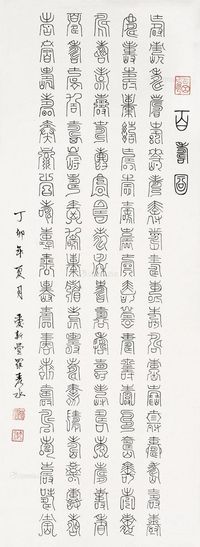 百壽圖
壽壽壽壽壽壽壽壽壽壽壽壽壽壽壽壽壽壽壽壽
壽壽壽壽壽壽壽壽壽壽壽壽壽壽壽壽壽壽壽壽
壽壽壽壽壽壽壽壽壽壽壽壽壽壽壽壽壽壽壽壽
壽壽壽壽壽壽壽壽壽壽壽壽壽壽壽壽壽壽壽壽
壽壽壽壽壽壽壽壽壽壽壽壽壽壽壽壽壽壽壽壽
丁卯年夏月
愛新覺羅